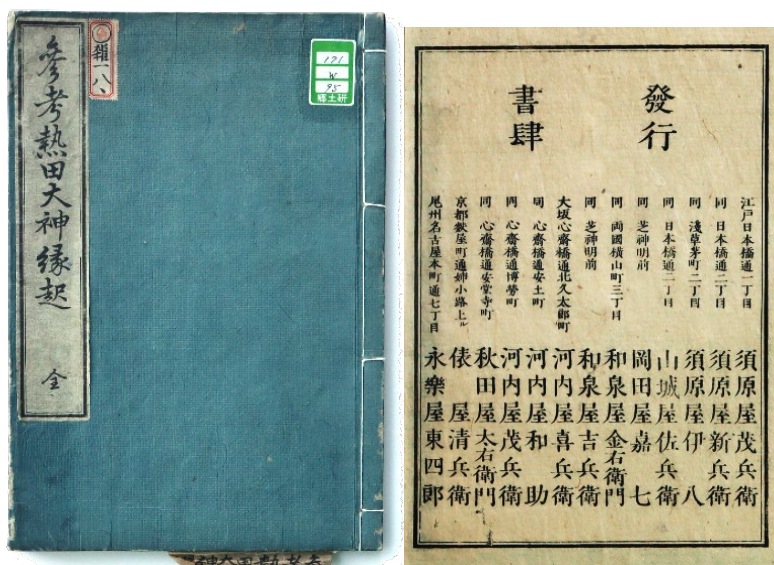 參考熱田大神縁起 全
雜一八、
121
W
95
郷土研
發行
書肆
江戸日本橋通一丁目 須原屋茂兵衛
同 日本橋通二丁目 須原屋新兵衛
同 淺草茅町二丁目 須原屋伊八
同 日本橋通二丁目 山城屋佐兵衛
同 芝神明前 岡田屋嘉七
同 両國横山町三丁目 和泉屋金右衛門
同 芝神明前 和泉屋吉兵衛
大坂心齋橋通北久太郎町 河内屋喜兵衛
同 心齋橋通安土町 河内屋和助
同 心齋橋通博勞町 河内屋茂兵衛
同 心齋橋通安堂寺町 秋田屋太右衛門
京都麩屋町通姉小路上ル 俵屋清兵衛
尾州名古屋本町通七丁目 永樂屋東四郎